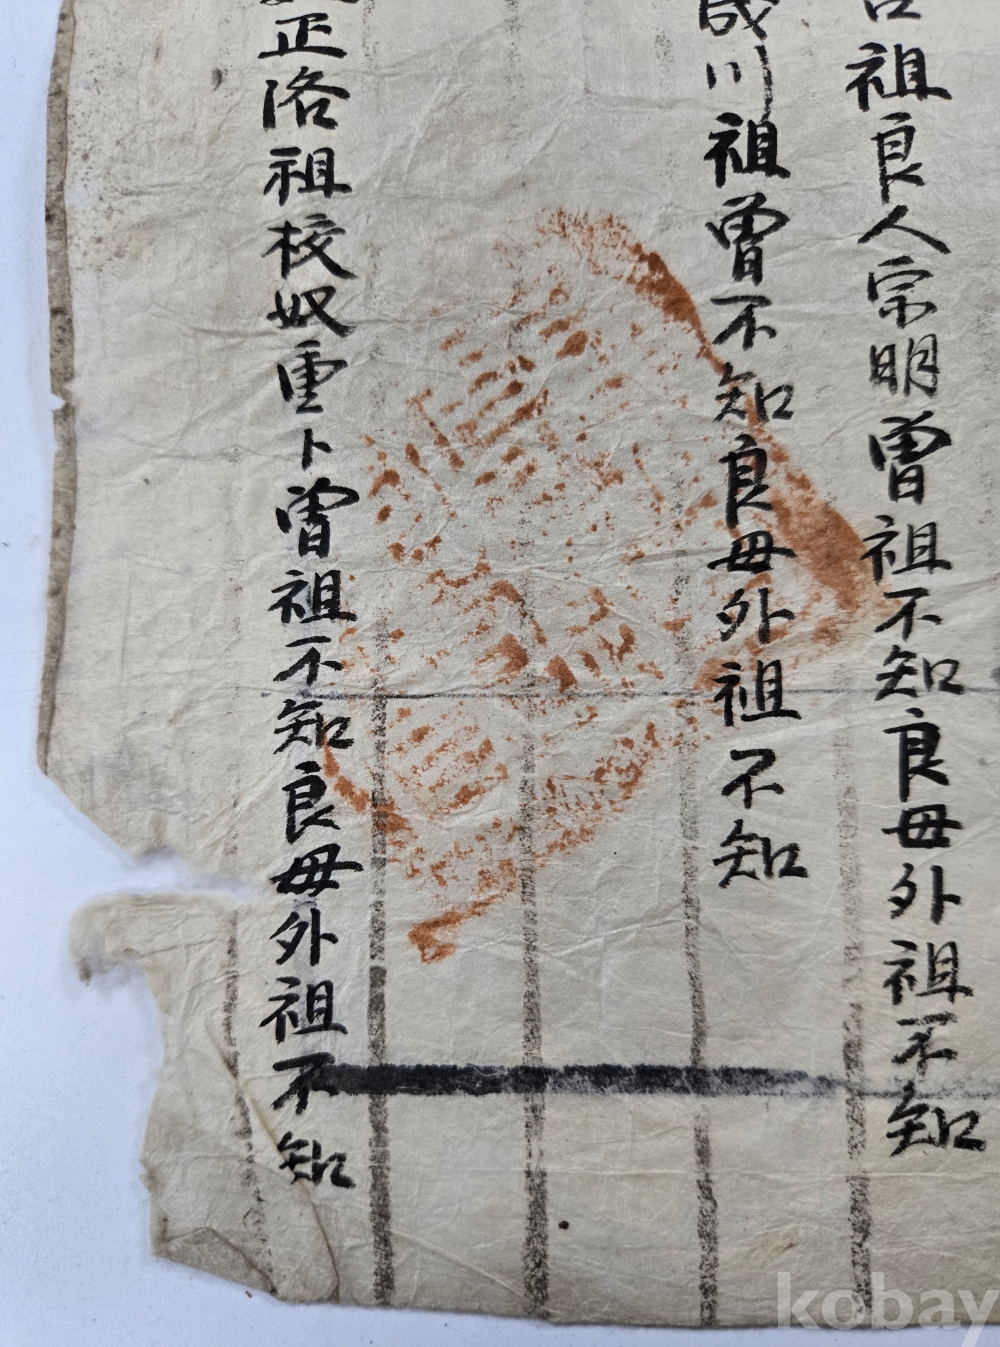 祖良人宗明曾祖不知良毋外祖不知
成川祖曾不知良毋外祖不知
正洛祖校奴重卜曾祖不知良毋外祖不知
kobay